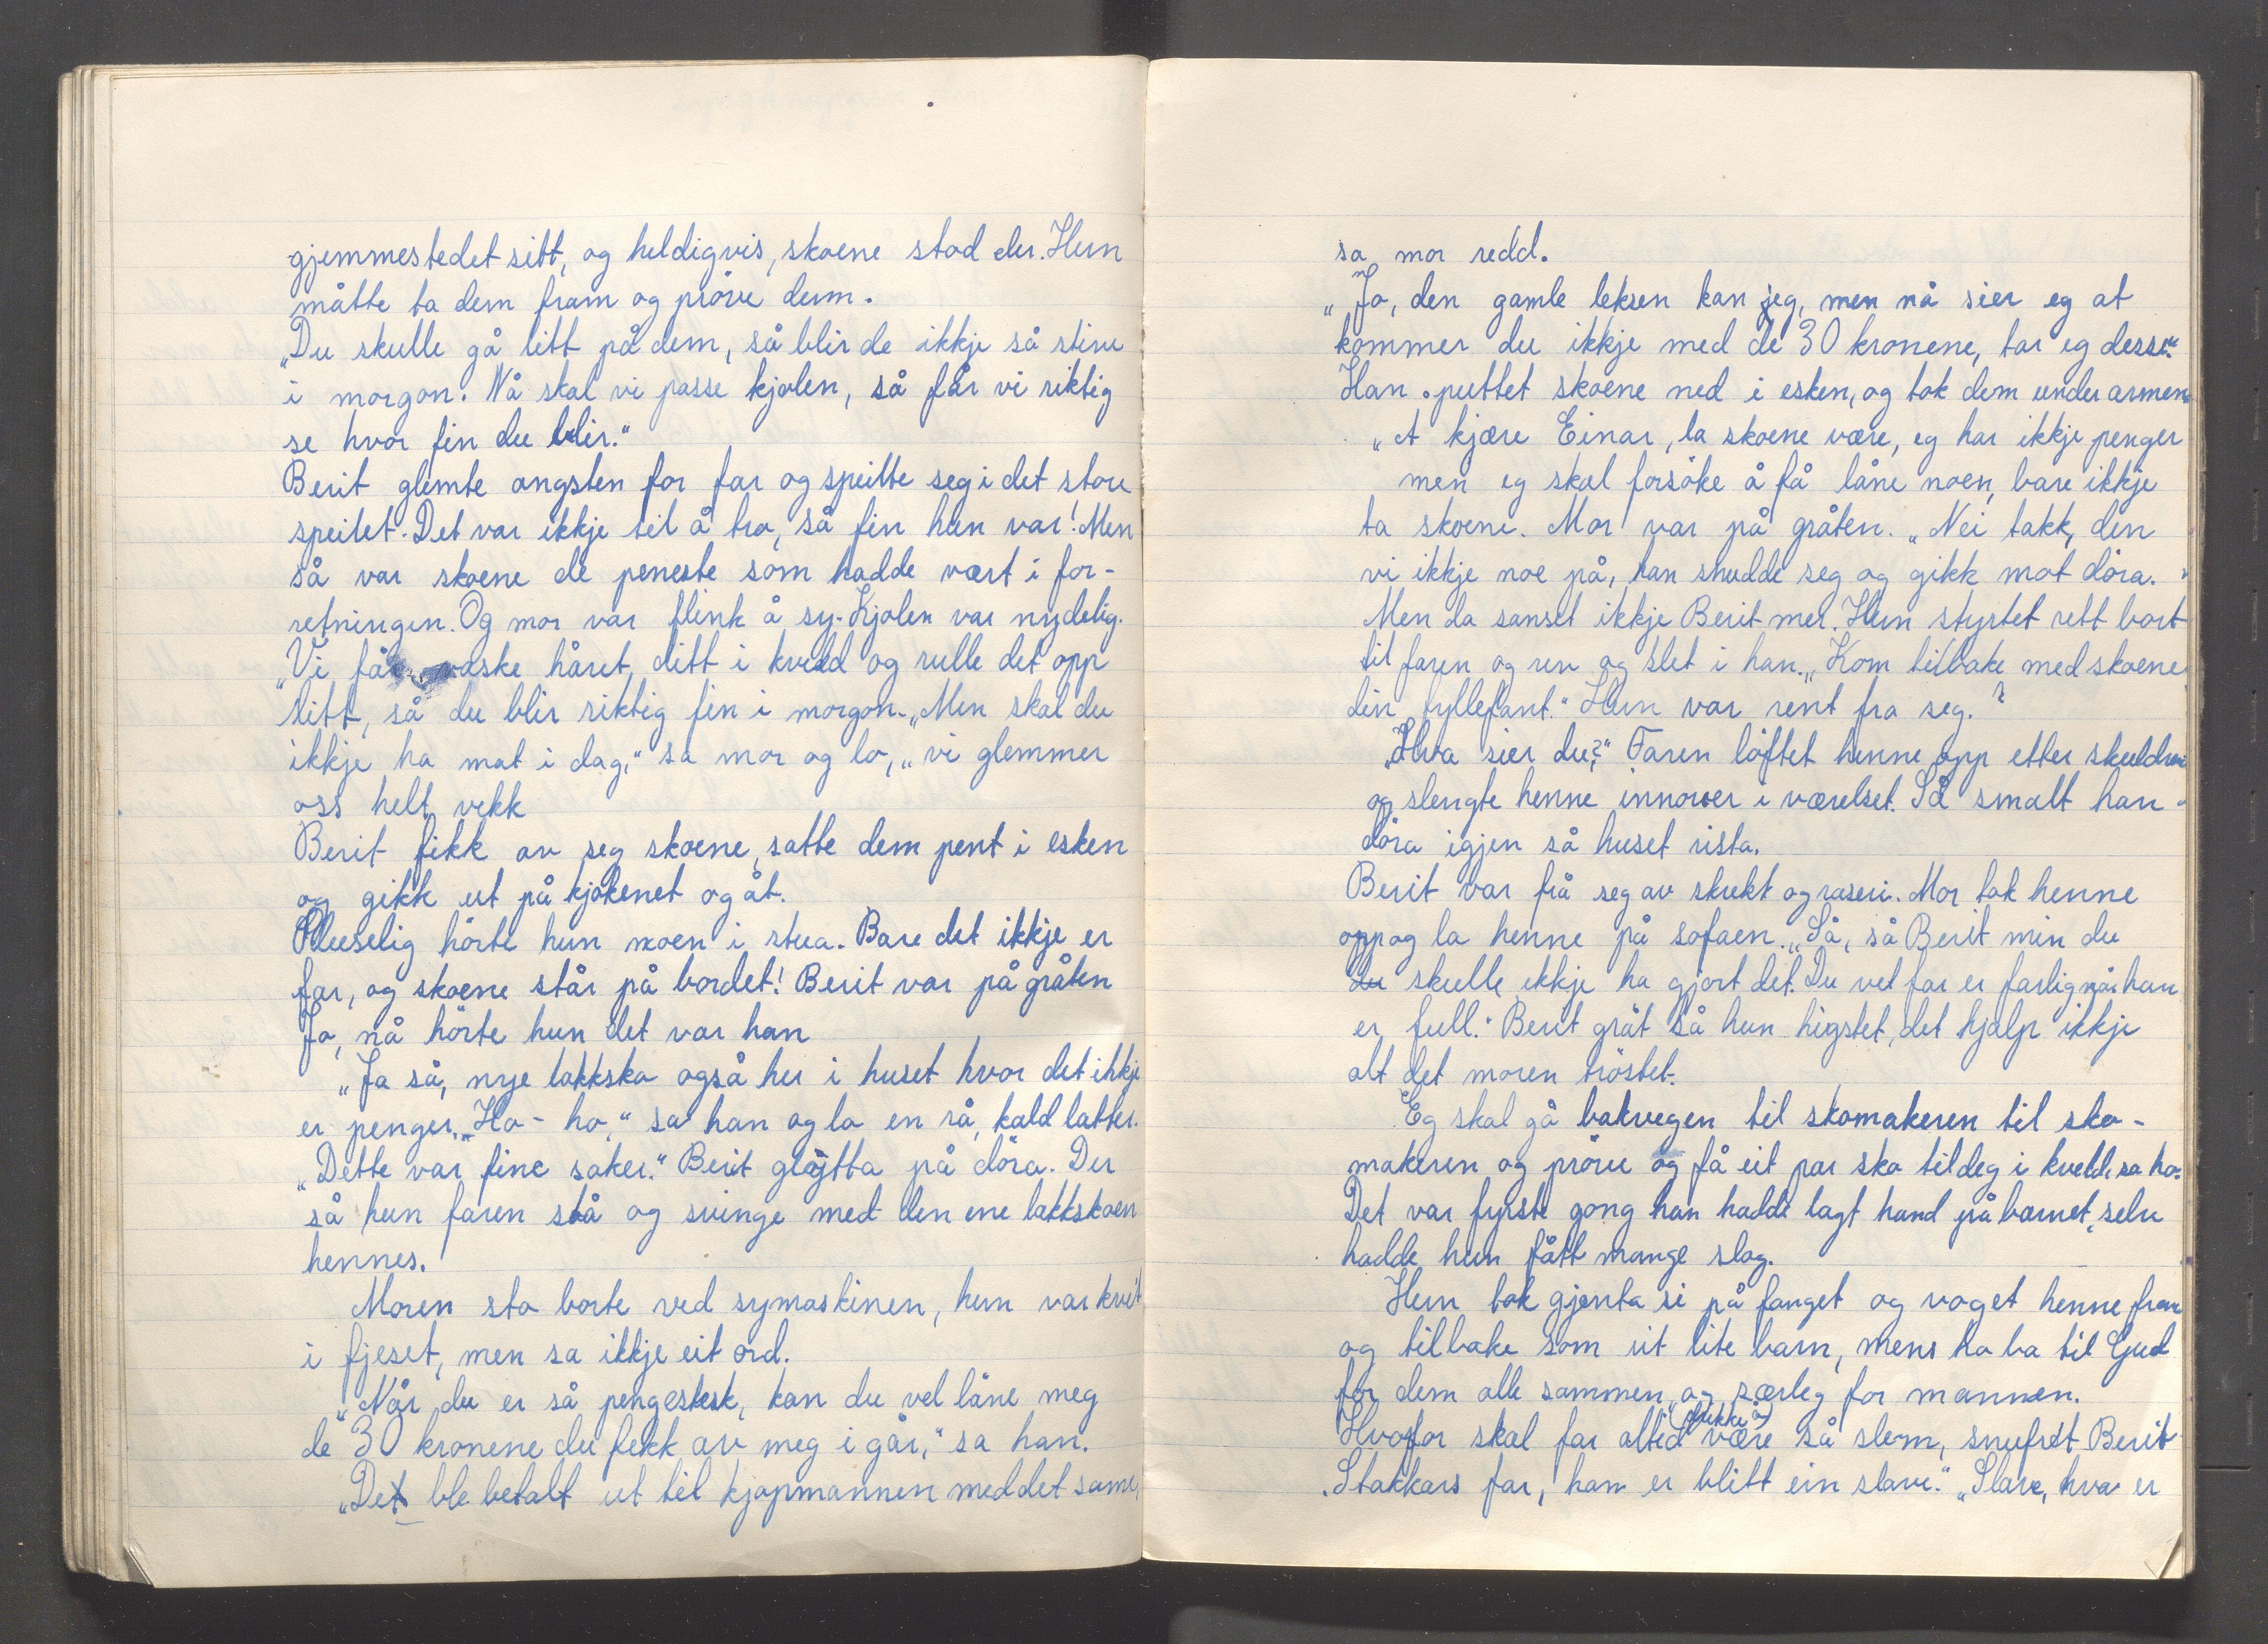 gjemmestedet sitt, og heldigvis, skoene stod der. Hun
måtte ta dem fram og pröve dem.
„Du skulle gå litt på dem, så blir de ikkje så stive
i morgon. Nå skal vi passe kjolen, så får vi riktig
se hvor fin du blir."
Berit glemte angsten for far og speilte seg i det store
speilet. Det var ikkje til å tro, så fin hun var! Men
så var skoene de peneste som hadde vært i for-
retningen. Og mor var flink å sy. Kjolen var nydelig.
„Vi får vaske håret ditt i kveld og rulle det opp
litt, så du blir riktig fin i morgon. „Men skal du
ikkje ha mat i dag," sa mor og lo, „vi glemmer
oss helt vekk
Berit fikk av seg skoene, satte dem pent i esken
og gikk ut på kjøkenet og åt.
Pluselig hörte hun noen i stua. Bare det ikkje er
far, og skoene står på bordet! Berit var på gråten
Jo, nå hörte hun det var han
„Ja så, nye lakksko også her i huset hvor det ikkje
er penger. „Ho-ho," sa han og lo en rå, kald latter.
„Dette var fine saker." Berit gløtta på döra. Der
så hun faren stå og svinge med den ene lakkskoen
hennes.
Moren sto borte ved symaskinen, hun var kvit
i fjeset, men sa ikkje eit ord.
„Når du er så pengesterk, kan du vel låne meg
de 30 kronene du fekk av meg i går," sa han.
„Det ble betalt ut til kjøpmannen med det same,
sa mor redd.
„Jo, den gamle leksen kan jeg, men nå sier eg at
kommer du ikkje med de 30 kronene, tar eg desse."
Han puttet skoene ned i esken, og tok dem under armen
„Å kjære Einar, la skoene være, eg har ikkje penger
men eg skal forsöke å få låne noen, bare ikkje
ta skoene. Mor var på gråten. „Nei takk, den
vi ikkje noe på, han snudde seg og gikk mot döra.
Men da sanset ikkje Berit mer. Hun styrtet rett bort
til faren og rev og slet i han. „Kom tilbake med skoene
din fyllefant." Hun var rent fra seg.
„Hva sier du?" Faren löftet henne opp etter skuldrene
og slengte henne innover i værelset. Så smalt han
döra igjen så huset rista.
Berit var frå seg av skrekk og raseri. Mor tok henne
opp og la henne på sofaen. „Så, så Berit min du
du skulle ikkje ha gjort det. Du vet far er farlig når han
er full." Berit gråt så hun higstet, det hjalp ikkje
alt det moren tröstet.
Eg skal gå bakvegen til skomakeren til sko-
makeren og pröve og få eit par sko til deg i kveld. sa ho.
Det var fyrste gong han hadde lagt hand på barnet, selv
hadde hun fått mange slag.
Hun tok gjenta si på fanget og voget henne fram
og tilbake som eit lite barn, mens ho ba til Gud
for dem alle sammen, og særleg for mannen.
Hvorfor skal far altid drikke å være så slem, snufset Berit
„Stakkars far, han er blitt ein slave." „Slave, hva er